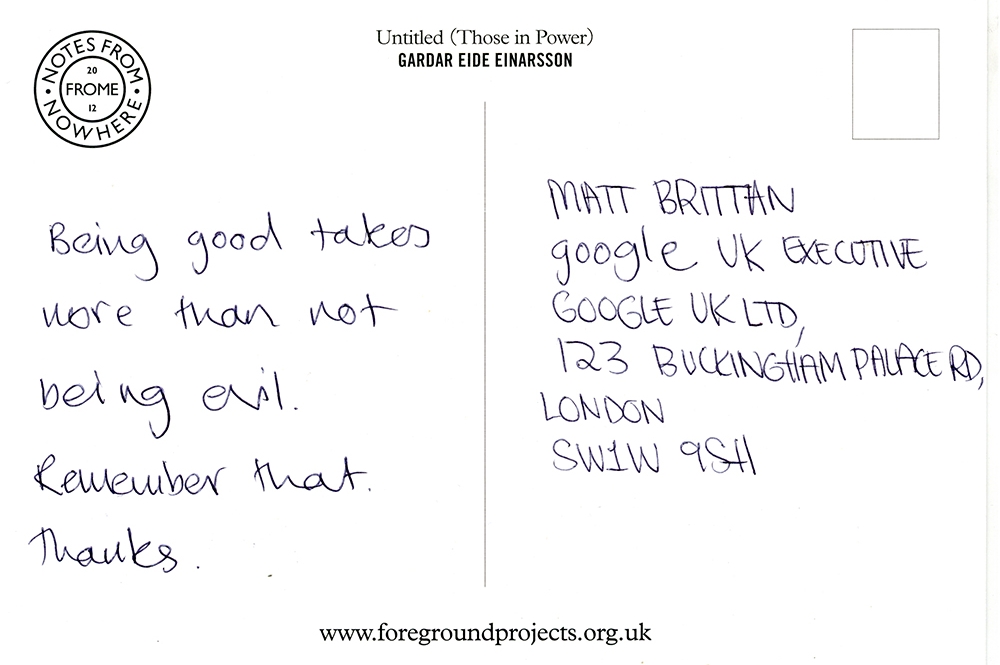 NOTES FROM
20
FROME
12
NOWHERE
Untitled (Those in Power)
GARDAR EIDE EINARSSON
Being good takes
more than not
being evil.
Remember that.
Thanks.
MATT BRITTAN
google UK EXECUTIVE
GOOGLE UK LTD,
123 BUCKINGHAM PALACE RD,
LONDON
SW1W 9SH
www.foregroundprojects.org.uk